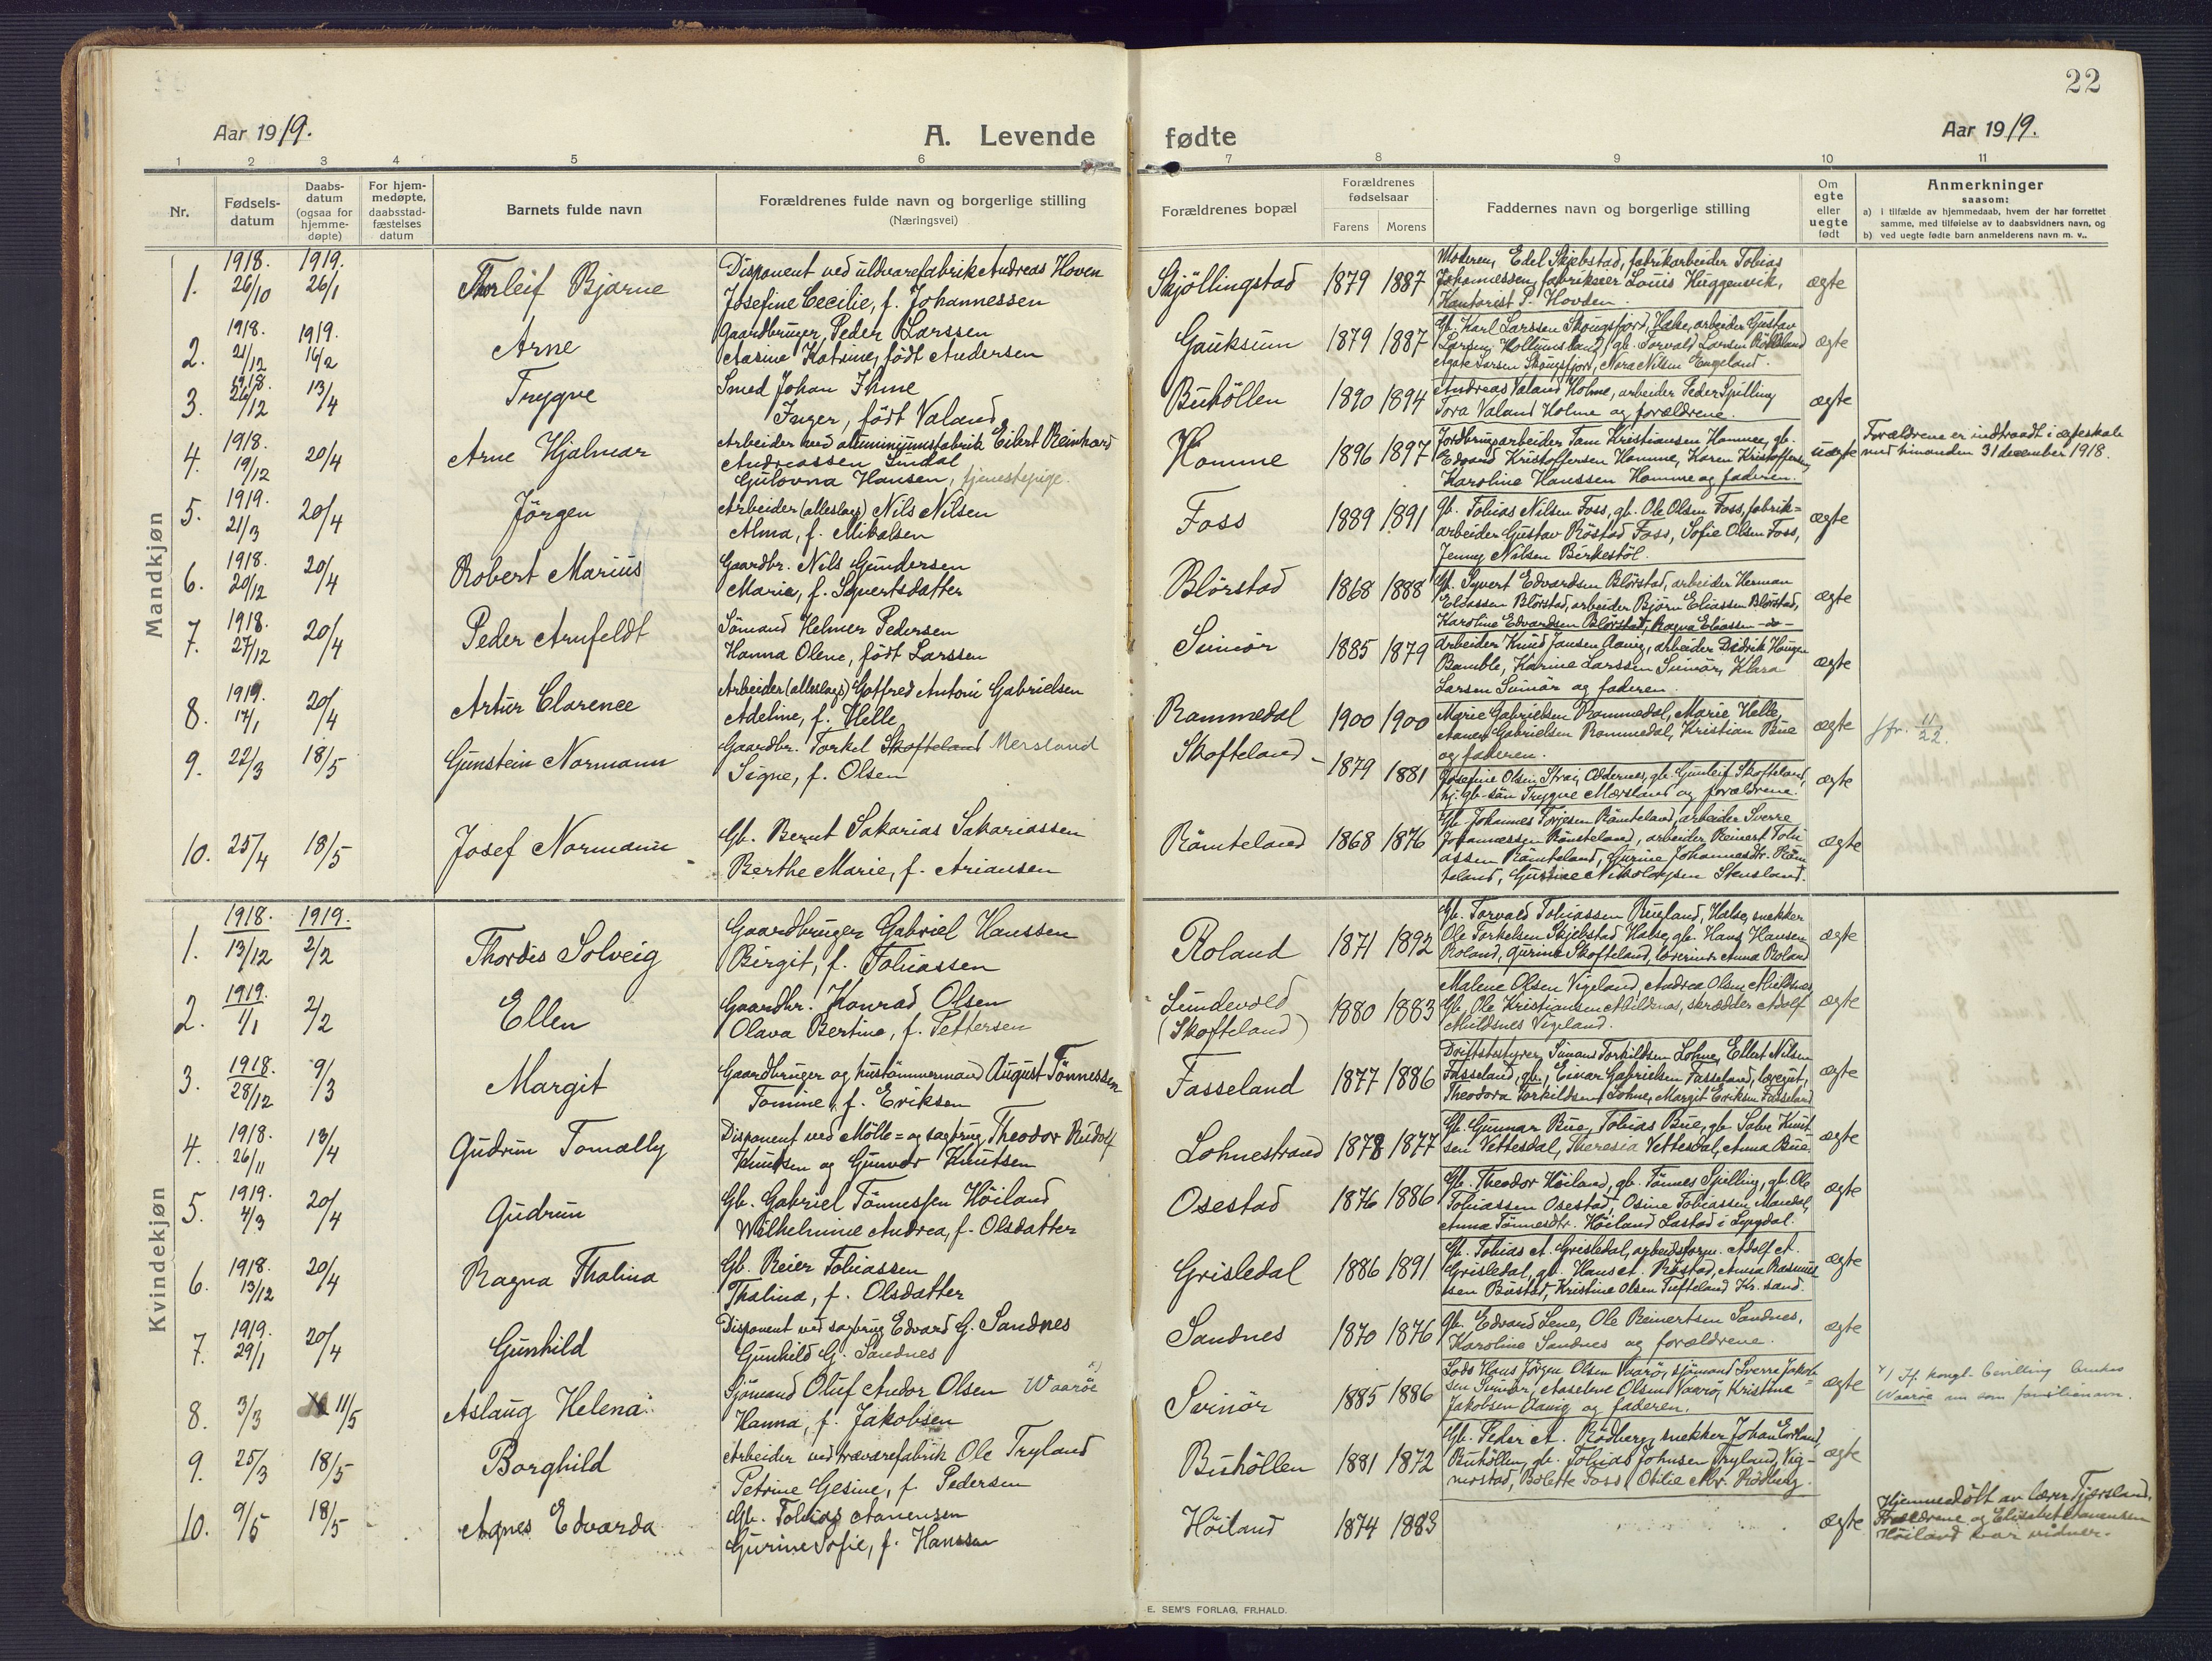 22
Aar 1919.
A. Levende fødte
Aar 1919.
1 2 3 4 5 6 7 8 9 10 11
Nr.
Fødsels-
datum
Daabs-
datum
(ogsaa for
hjemme-
døpte)
For hjem-
medøpte,
daabsstad-
fæstelses
datum
Barnets fulde navn
Forældrenes fulde navn og borgerlige stilling
(Næringsvei)
Forældrenes bopæl
Forældrenes
fødselsaar
Farens Morens
Faddernes navn og borgerlige stilling
Om
egte
eller
uegte
født
Anmerkninger
saasom:
a) i tilfælde av hjemmedaab, hvem der har forrettet
samme, med tilføielse av to daabsvidners navn, og
b) ved uegte fødte barn anmelderens navn m. v..
Mandkjøn
1. 1918. 26/10 1919. 26/1 Thorleif Bjarne
Disponent ved uldvarefabrik Andreas Hoven
Josefine Cecilie, f. Johannessen
Skjöllingstad 1879 1887
Moderen, Edel Skjebstad, fabrikarbeider Tobias
Johannessen, fabrikeier Louis Huggenvik,
Kontorist P. Hovden.
ægte
2. 1918. 21/12 1919. 16/2 Arne
Gaardbruger, Peder Larssen
Aasine Katrine, født Andersen
Gauksum 1879 1887
Gb. Karl Larssen Skougsfjord, Halse, arbeider Gustav
Larsen, Hollumsland, gb. Torvald Larsen
Agate Larsen Skougsfjord, Nora Nilsen Engeland.
ægte
3. 1918. 26/12 13/4 Trygve
Smed Johan Ihme
Inger, født Valand
Buhöllen 1890 1894
Andreas Valand Holme, arbeider Peder Spilling
Tora Valand Holme og forældrene.
ægte
4. 1918. 19/12 20/4 Arne Hjalmar
Arbeider ved aluminiumsfabrik Eilert Reinhard
Andreassen Lindal
Gulovna Hansen, tjenestepige.
Homme 1896 1897
Jordbrugsarbeider Tom Kristiansen Homme, gb.
Edvard Kristoffersen Homme, Karen Kristoffersen
Karoline Hanssen Homme og faderen.
uægte
Forældrene er indtraadt i ægteskab
med hinanden 31 december 1918.
5. 1919. 21/3 20/4 Jörgen
Arbeider (alleslags) Nils Nilsen
Alma, f. Mikalsen
Foss 1889 1891
Gb. Tobias Nilsen Foss, gb. Ole Olsen Foss, fabrik=
arbeider Gustav Röstad Foss, Sofie Olsen Foss,
Jenny Nilsen Birkestöl.
ægte
6. 1918. 20/12 20/4 Robert Marius
Gaardbr. Nils Gundersen
Marie, f. Syvertsdatter
Blörstad 1868 1888
Gb. Syvert Edvardsen Blörstad, arbeider Herman
Eliassen Blörstad, arbeider Björn Eliassen Blörstad,
Karoline Edvardsen Blörstad, Ragna Eliassen -do-
ægte
7. 1918. 27/12 20/4 Peder Arnfeldt
Sömand Helmer Pedersen
Hanna Olene, født Larssen
Svinör 1885 1879
Arbeider Knud Jansen Aavig, arbeider Didrik Haugen
Bamble, Karine Larssen Svinör, Klara
Larsen Svinör og faderen.
ægte
8. 1919. 17/1 20/4 Artur Clarence
Arbeider (alleslags) Gotfred Antoni Gabrielsen
Adeline, f. Helle
Rammedal 1900 1900
Marie Gabrielsen Rammedal, Marie Helle,
Aanen Gabrielsen Rammedal, Kristian Bue
og faderen.
ægte
jfr. 11/22.
9. 22/3 18/5 Gunstein Normann
Gaardbr. Torkel Skofteland Mersland
Signe, f. Olsen
Skofteland 1879 1881
Josefine Olsen Strai, Oddernes, gb. Gunleif Skofteland,
hj. gb. sön Trygve Mersland og forældrene.
ægte
10. 25/4 18/5 Josef Normann
Gb. Bernt Sakarias Sakariassen
Berthe Marie, f. Ariansen
Römteland 1868 1876
Gb. Johannes Torjesen Römteland, arbeider Sverre
Johannessen Römteland, arbeider Reinert Tobi
assen Römteland, Gurine Johannesdtr. Röm
teland, Gurine Nikolaysen Stensland.
ægte
Kvindekjøn
1. 1918. 13/12 1919. 2/2 Thordis Solveig
Gaardbruger Gabriel Hanssen
Birgit, f. Tobiassen
Roland 1871 1892
Gb. Torvald Tobiassen Rueland, Halse, snekker
Ole Torkelsen Skjebstad Halse, gb. Hans Hansen
Roland, Gurine Skofteland, lærerinde Anna Roland
ægte
2. 1919. 1/1 2/2 Ellen
Gaardbr. Konrad Olsen
Olava Bertine, f. Pettersen
Sundevold
(Skofteland) 1880 1883
Malene Olsen Vigeland, Andrea Olsen Mildsnes,
Gb. Ole Kristiansen Mildsnes, skrædder Adolf
Mildsnes Vigeland.
ægte
3. 1918. 28/12 9/3 Margit
Gaardbruger og hustömmermand August Tönnessen
Tomine, f. Eriksen
Fasseland 1877 1886
Driftsbestyrer Simand Torkildsen Lohne, Ellert Nilsen
Fasseland, gb., Einar Gabrielsen Fasseland, lægegut,
Theodora Torkildsen Lohne, Margit Eriksen Fasseland
ægte
4. 1918. 26/11 13/4 Gudrun Tomally
Disponent ved Mölle= og sagbrug Theodor Rudolf
Knutsen og Gunvor Knutsen
Lohnestrand 1878 1877
Gb. Gunnar Bue, Tobias Bue, gb. Salve Knut
sen Vettesdal, Theresia Vettesdal, Anna Bue.
ægte
5. 1919. 4/3 20/4 Gudrun
Gb. Gabriel Tönnessen Höiland
Wilhelmine Andrea, f. Olsdatter
Osestad 1876 1886
Gb. Theodor Höiland, gb. Tönnes Spilling, gb. Ole
Tobiassen Osestad, Osine Tobiassen Mandal,
Anna Tönnesdtr. Höiland Lastad i Lyngdal.
ægte
6. 1918. 13/12 20/4 Ragna Thalina
Gb. Reier Tobiassen
Thalina, f. Olsdatter
Grisledal 1886 1891
Gb. Tobias A. Grisledal, arbeidsform. Adolf A.
Grisledal, gb. Hans A. Röstad, Anna Rasmus
sen Bustad, Kristine Olsen Tufteland Kr.sand.
ægte
7. 1919. 29/1 20/4 Gunhild
Disponent ved sagbrug Edvard G. Sandnes
Gunhild G. Sandnes
Sandnes 1870 1876
Gb. Edvard Lene, Ole Reinertsen Sandnes,
Karoline Sandnes og forældrene.
ægte
8. 3/3 11/5 Aslaug Helena
Sjömand Oluf Andor Olsen Waaröe x)
Hanna, f. Jakobsen
Svinör 1885 1886
Lods Hans Jörgen Olsen Vaarö, sjömand Sverre Jakob=
sen Svinör, Aaselene Olsen Vaarö, Kristine
Jakobsen Aavig og faderen.
ægte
x) If. kongl. bevilling
Waaröe som familienavn.
9. 25/3 18/5 Borghild
Arbeider ved trævarefabrik Ole Tryland
Petrine Gesine, f. Pedersen
Buhöllen 1881 1872
Gb. Peder A. Rödberg, snekker Johan Erland,
Buhöllen, gb. Tobias Johnsen Tryland, Vig-
mostad, Bolette Foss, Otilie Rödberg.
ægte
10. 9/5 18/5 Agnes Edvarda
Gb. Tobias Aanensen
Gurine Sofie, f. Hanssen
Höiland 1874 1883
ægte
Hjemmedöbt av lærer Tjersland.
Forældrene og Elisabet Aanensen
Höiland var vidner.
E. SEM'S FORLAG, FR.HALD.